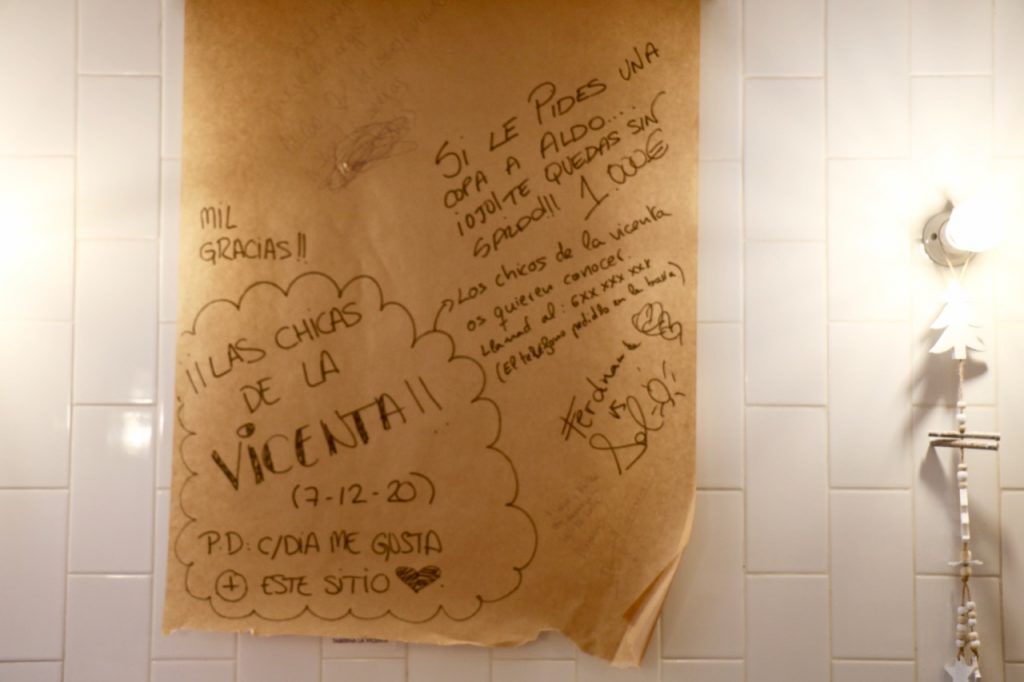 SI LE PIDES UNA
COPA A ALDO...
¡OJO! TE QUEDAS SIN
SALDO!!! 1.000€
MIL
GRACIAS!!
¡¡LAS CHICAS
DE LA
VICENTA!!
(7-12-20)
P.D: C/DÍA ME GUSTA
+ ESTE SITIO
Los chicos de la vicenta
os quieren conocer.
Llamad al: 6XX XXX XXX
(El teléfono pedidlo en la barra)